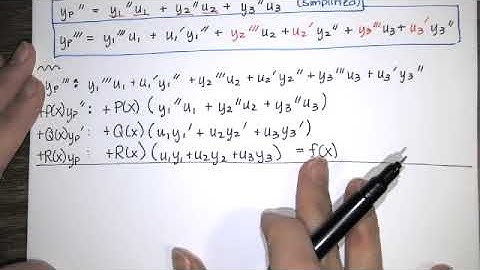 yp" = y₁"u₁ + y₂"u₂ + y₃"u₃ (simplified)
yp''' = y₁'''u₁ + u₁'y₁" + y₂'''u₂ + u₂'y₂" + y₃'''u₃ + u₃'y₃"
yp''': y₁'''u₁ + u₁'y₁" + y₂'''u₂ + u₂'y₂" + y₃'''u₃ + u₃'y₃"
+P(x)yp": +P(x)(y₁"u₁ + y₂"u₂ + y₃"u₃)
+Q(x)yp': +Q(x)(u₁y₁' + u₂y₂' + u₃y₃')
+R(x)yp: +R(x)(u₁y₁+u₂y₂+u₃y₃) = f(x)